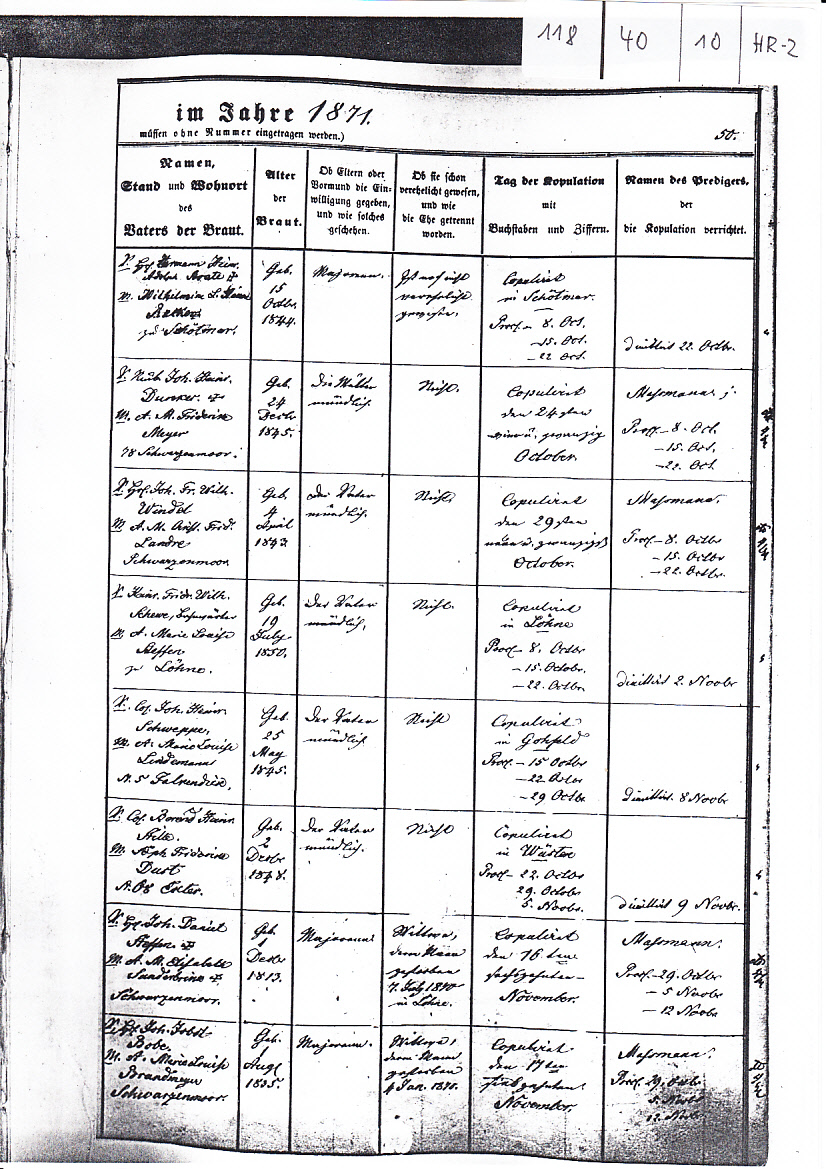 118 40 10 HR-2
im Jahre 1871.
müssen ohne Nummer eingetragen werden.)
50.
Namen,
Stand und Wohnort
des
Vaters der Braut.
Alter
der
Braut.
Ob Eltern oder
Vormund die Ein-
willigung gegeben,
und wie solches
geschehen.
Ob sie schon
verehelicht gewesen,
und wie
die Ehe getrennt
worden.
Tag der Kopulation
mit
Buchstaben und Ziffern.
Namen des Predigers,
der
die Kopulation verrichtet.
V. Hermann Heinr.
Adolph
M. Wilhelmine L.
zu Schötmar.
Geb.
15
Octbr.
1844.
Majorenn.
Ist noch nicht
verehelicht
gewesen.
Copulirt
in Schötmar.
Procl. – 8. Oct.
– 15. Oct.
– 22. Oct.
dimittirt 22. Octbr.
V. Joh. Heinr.
M. A. M. Friderike
Meyer
78 Schwarzenmoor.
Geb.
24
Decbr
1845.
Die Mutter
mündlich.
Nicht.
Copulirt
den 24sten
vier u. zwanzig
October.
Masmann
Procl. – 8. Oct.
– 15. Oct.
– 22. Oct.
V. Joh. Fr. Wilh.
Windel
M. A. M. Frid.
Landre
Schwarzenmoor.
Geb.
4
April
1843
Der Vater
mündlich.
Nicht.
Copulirt
den 29sten
neun u. zwanzigst
October.
Masmann.
Procl. – 8. Octbr
– 15. Octbr
– 22. Octbr.
V. Heinr. Fridr. Wilh.
Schewe,
M. A. Marie Louise
Steffen
zu Löhne.
Geb.
19
July
1850.
Der Vater
mündlich.
Nicht.
Copulirt
in Löhne
Procl. – 8. Octbr
– 15. Octobr.
– 22. Octbr.
dimittirt 2. Novbr
V. Col. Joh. Heinr.
Schweppe,
M. A. Marie Louise
Lindemann
N. 5 Falkendiek.
Geb.
25
May
1845.
Der Vater
mündlich
Nicht
Copulirt
in Gohfeld
Procl. – 15 Octbr
– 22. Octbr
– 29 Octbr.
dimittirt. 8 Novbr
V. Col. Berend Heinr.
M. Friderike
Dust
Exter.
Geb.
2
Decbr
Der Vater
mündlich.
Nicht
Copulirt
in Wüsten
Procl. – 22. Octbr
29. Octobr
5. Novbr.
dimittirt 9 Novbr.
V. Joh. Daniel
Steffen
M. A. M. Elisabeth
Sunderbrink
Schwarzenmoor.
Geb.
1
Decbr
1813.
Majorenn
Wittwe,
deren Mann
gestorben
7. July
in Löhne.
Copulirt
den 16ten
sechszehnten –
November.
Masmann.
Procl. – 29. Octbr
– 5 Novbr
– 12 Novbr
V. Joh. Jobst
Bobe.
M. A. Marie Louise
Brandmeyer
Schwarzenmoor.
Geb.
1
Augt
1835.
Majorenn.
Wittwe,
deren Mann
gestorben
4 Jan.
Copulirt
den 17ten
November.
Masmann.
Procl. 29. Octbr
5. Novbr
12. Novbr